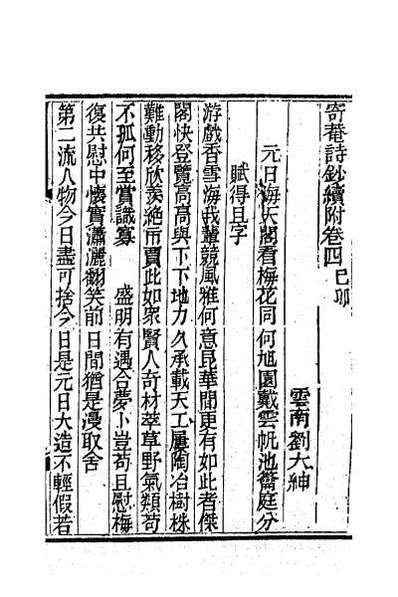 寄菴詩鈔續附卷四 己卯
雲南劉大紳
元日海天閣看梅花同何旭園戴雲帆池籥庭分
賦得且字
游戲香雪海我輩競風雅何意昆華間更有如此者傑
閣快登覽高高與下下地力久承載天工屢陶冶樹株
難動移欣羨絕市賈此如衆賢人奇材萃草野氣類苟
不孤何至賞識寡 盛明有遇合夢卜豈苟且慰梅
復共慰中懷實瀟灑翻笑前日間猶是漫取舍
第二流人物今日盡可捨今日是元日大造不輕假若